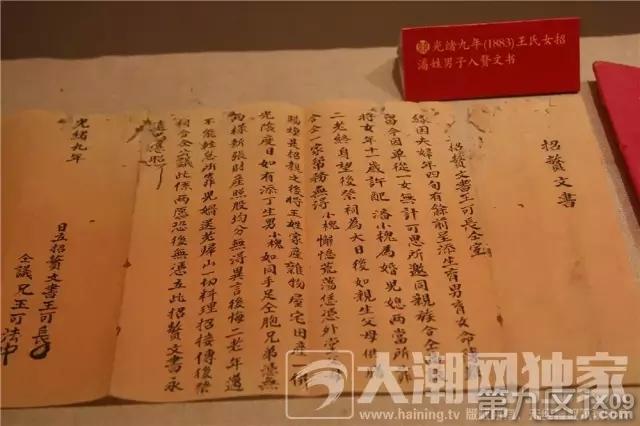 光緒九年(1883)王氏女招
潘姓男子入贅文书
招贅文書
招贅文書王可長仝室
緣因夫婦年四旬有餘前呈添生育男育女命
當今因單從一女無計可思所邀同親族合仝
將女年十一歲許配潘小槐為婚兒媳兩當所
二老終身望後祭祠為大日後如親生父母供
合仝一家常務無得小槐懈怠荒蕩恁憑外堂
賜短是招親之後將王姓家產雜物屋宅田產供
光陰度日如有添丁生男小槐如同手足仝胞兄弟蕩無
兩樣新張財產照股均分無得異言後悔二老年邁
不能姓息所靠兒婿送老歸山一切料理招接傳後祭
祠合仝議此係兩愿恐後無憑立此招贅文書永
遠應照
光緒九年
日立招贅文書王可長
仝議兄王可法
大潮网独家
www.haining.tv
第九区